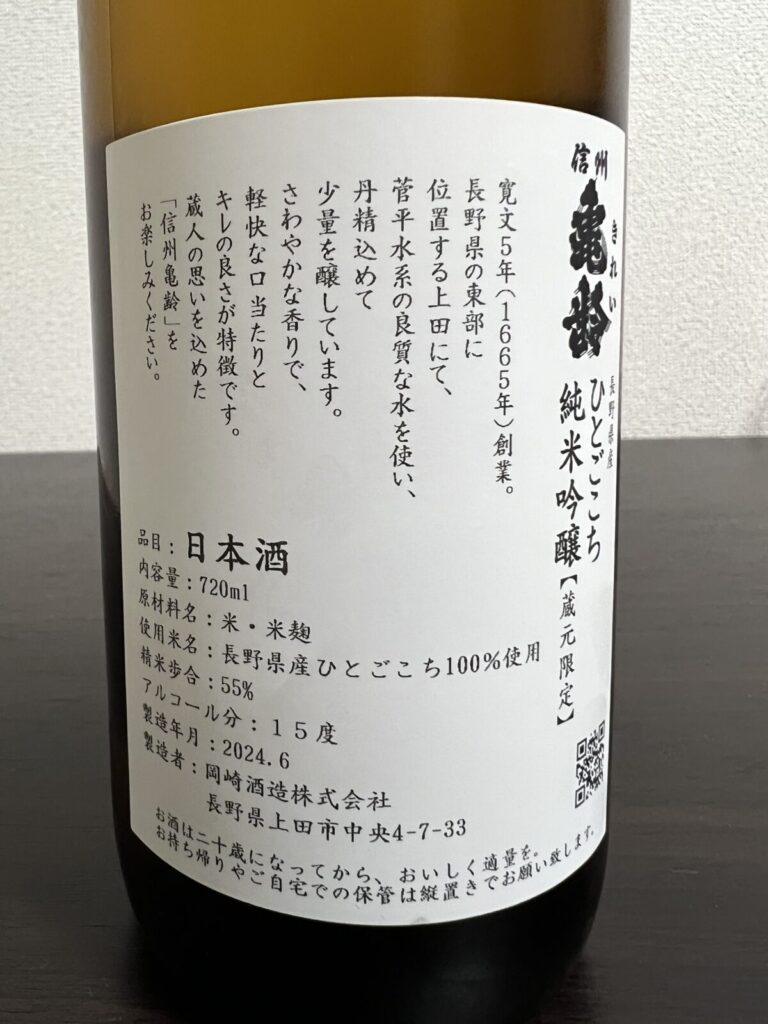 信州
亀齢
きれい
長野県産
ひとごこち
純米吟醸【蔵元限定】
寛文5年(1665年)創業。
長野県の東部に
位置する上田にて、
菅平水系の良質な水を使い、
丹精込めて
少量を醸しています。
さわやかな香りで、
軽快な口当たりと
キレの良さが特徴です。
蔵人の思いを込めた
「信州亀齢」を
お楽しみください。
品目：日本酒
内容量：720ml
原材料名：米・米麹
使用米名：長野県産ひとごこち100%使用
精米歩合：55%
アルコール分：15度
製造年月：2024.6
製造者：岡崎酒造株式会社
長野県上田市中央4-7-33
お酒は二十歳になってから、おいしく適量を。
お持ち帰りやご自宅での保管は縦置きでお願い致します。